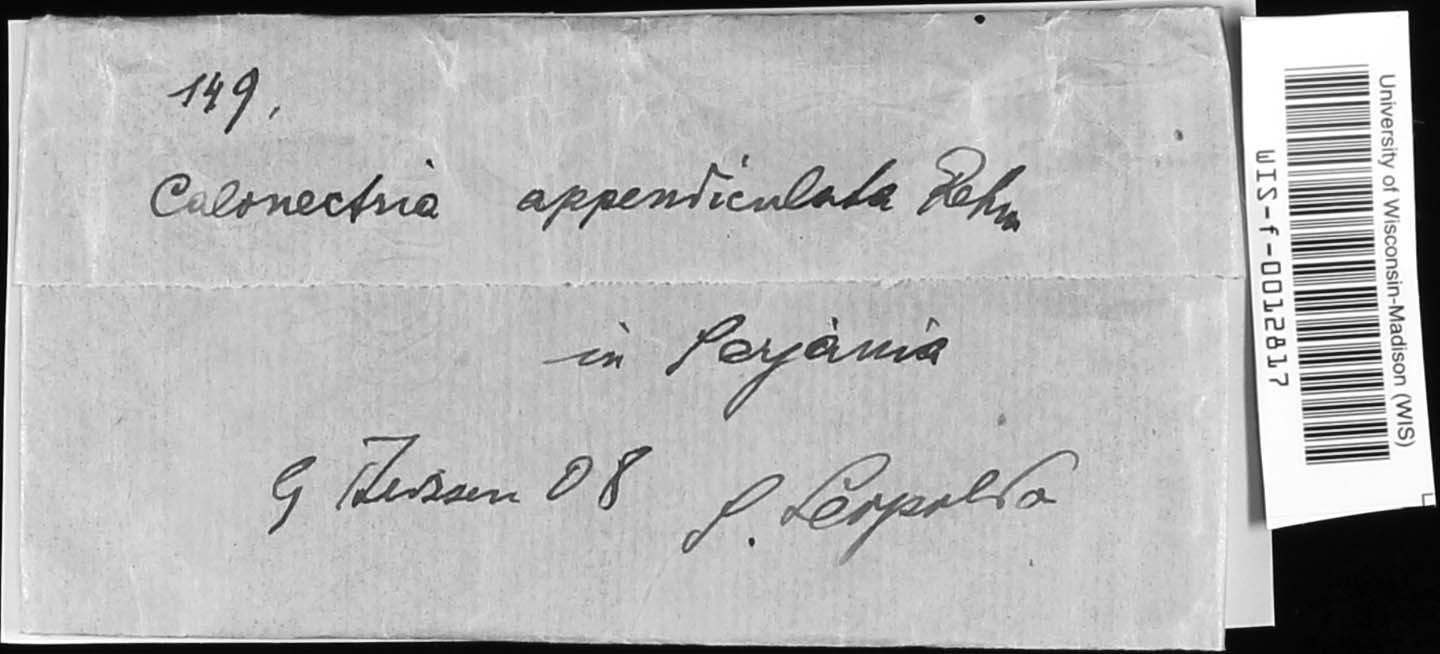 149.
Calonectria appendiculata Rehm
in Serjania
G Theissen 08 S. Leopoldo
University of Wisconsin-Madison (WIS)
WIS-f-0012817